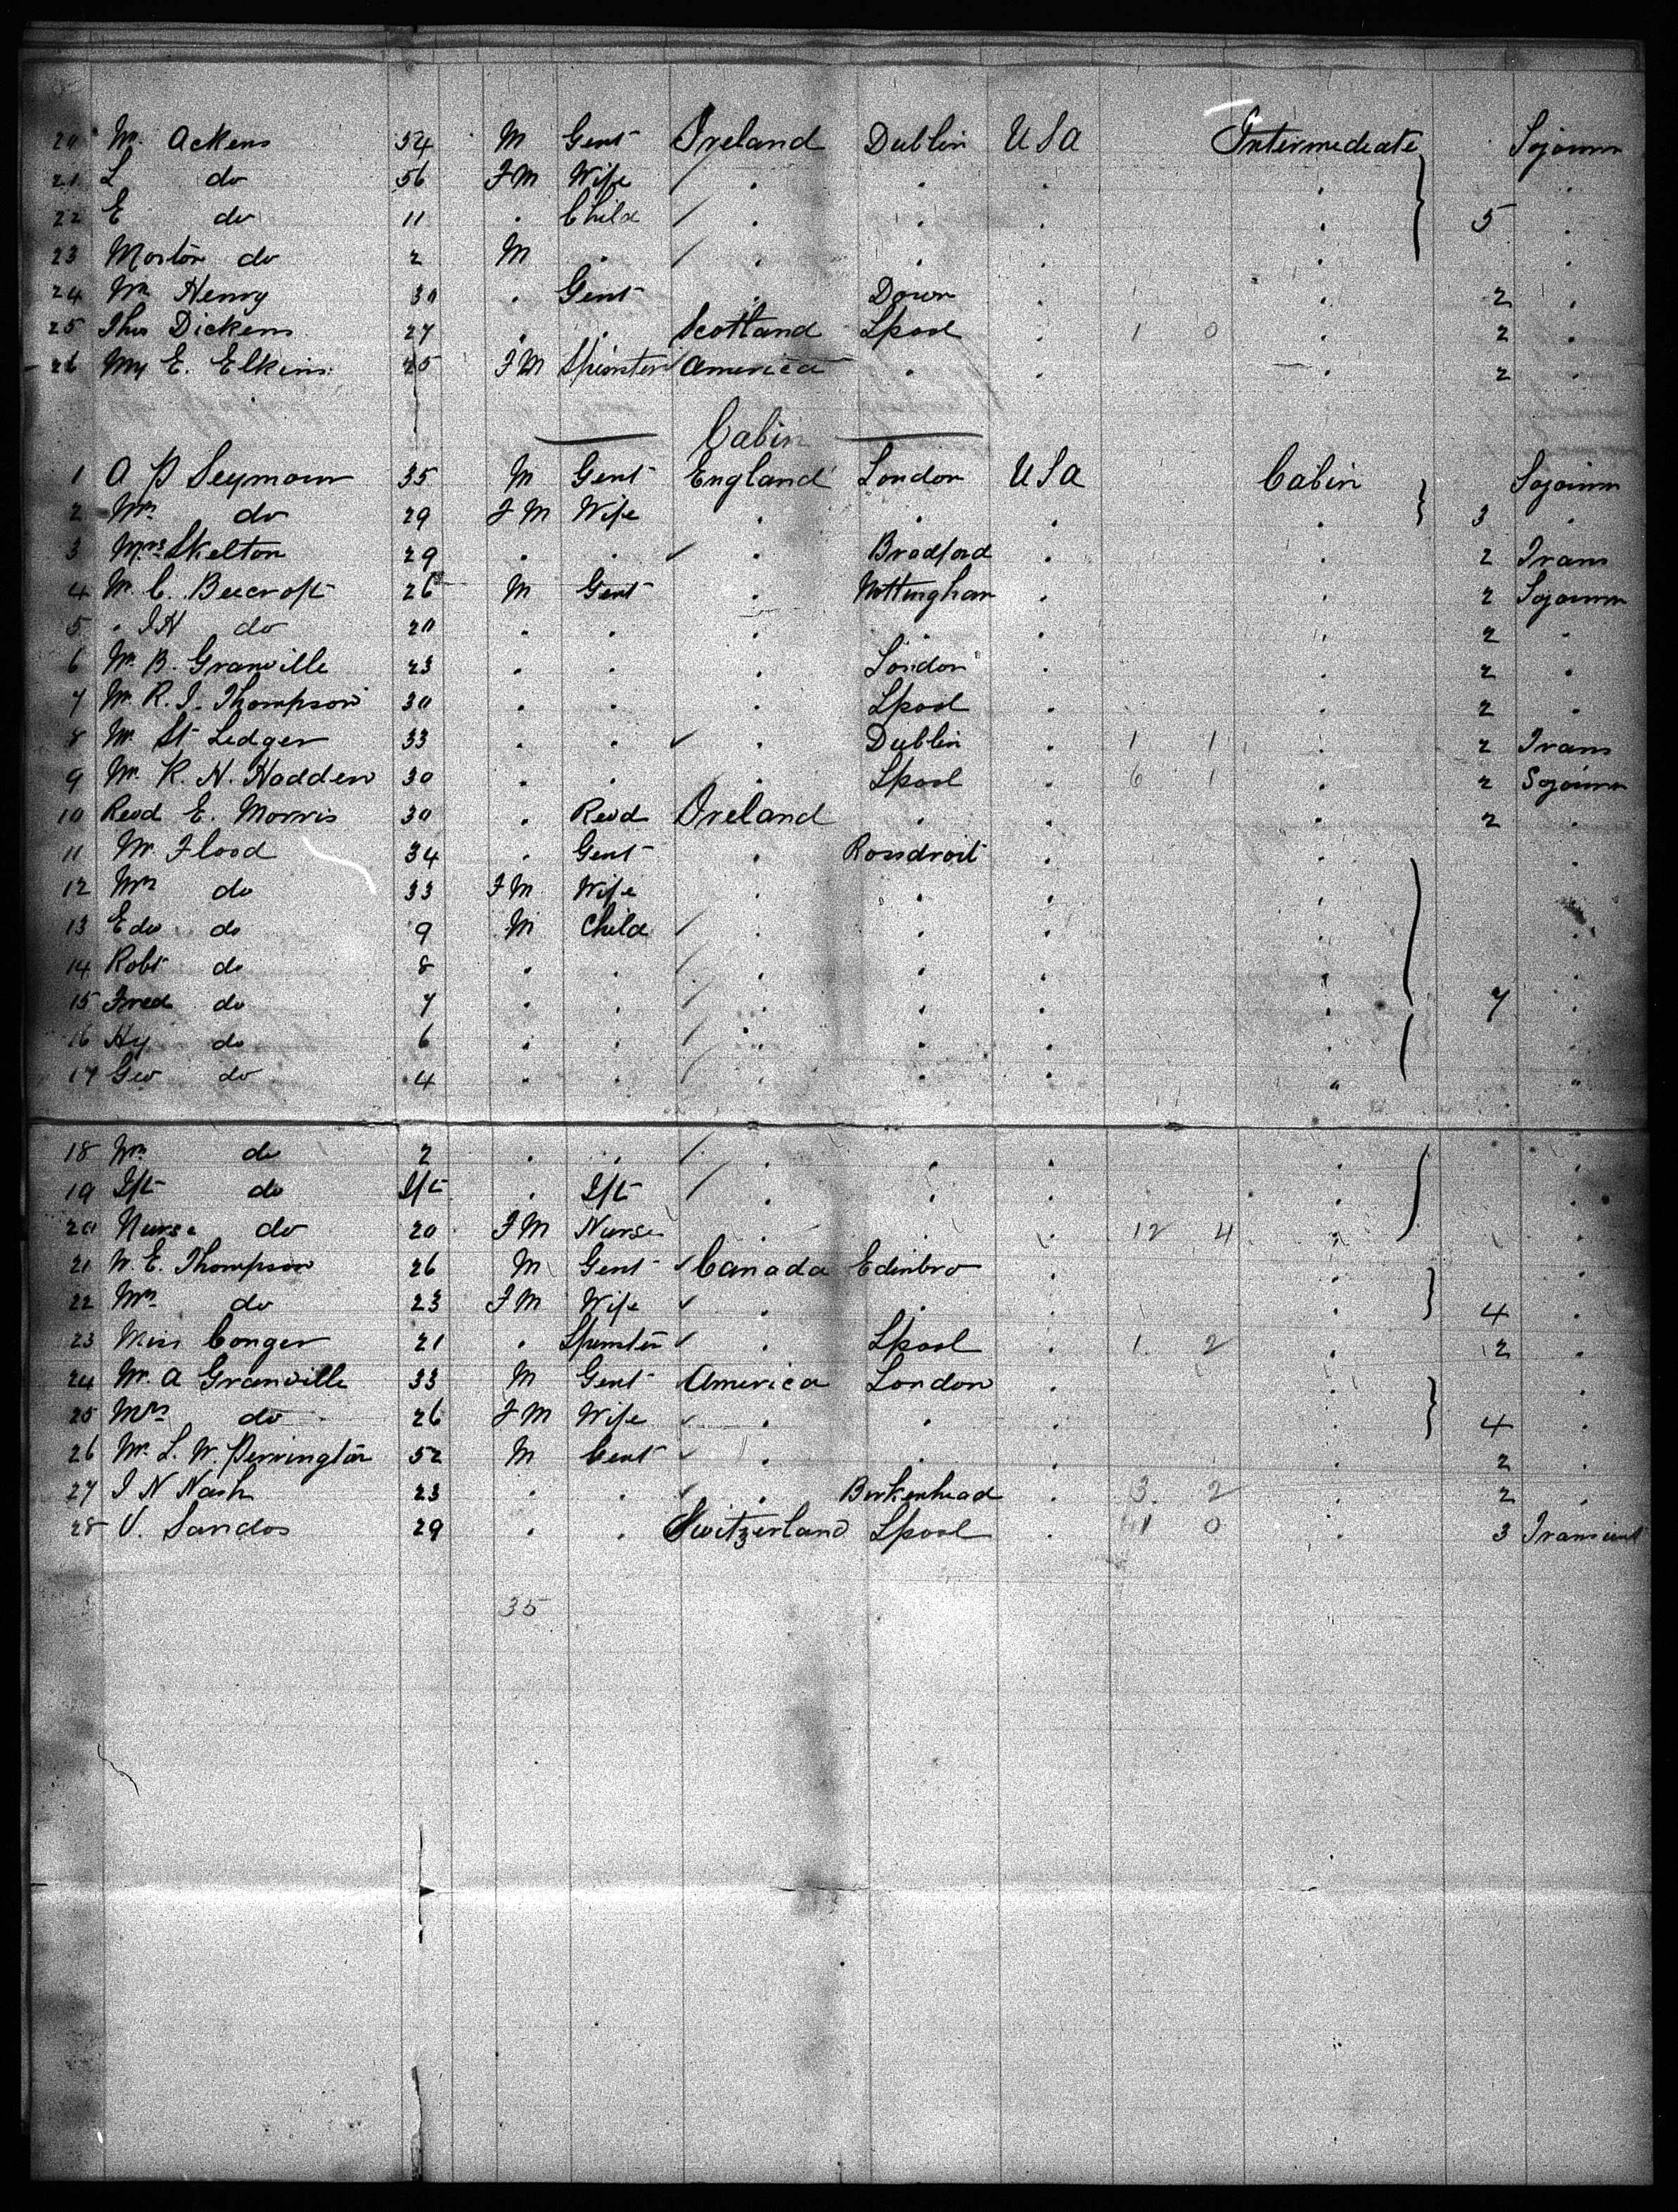 20 Mr. Ackens 54 M Gent Ireland Dublin USA Intermediate Sojourn
21 L do 56 FM Wife / . . . . .
22 E do 11 . Child / . . . . 5 .
23 Morton do 2 M . / . . . . .
24 Mr Henry 30 . Gent . Down . . 2 .
25 Thos Dickens 27 . . Scotland Lpool . 1 0 . 2 .
26 E. Elkins 25 FM Spinster America . . . 2 .
Cabin
1 A P Seymour 35 M Gent England London USA Cabin Sojourn
2 Mrs do 29 FM Wife . . . . 3 .
3 Mrs Skelton 29 . . . Bradford . . 2 Trans
4 Mr C. Beecroft 26 M Gent . Nottingham . . 2 Sojourn
5 " JH do 20 . . . . . " 2 "
6 Mr B. Granville 23 . . . London . . 2 .
7 Mr R. J. Thompson 30 . . . Lpool . . 2 .
8 Mr St Ledger 33 . . . Dublin . 1 1 . 2 Trans
9 Mr R. H. Hadden 30 . . . Lpool . 6 1 . 2 Sojourn
10 Revd E. Morris 30 . Revd Ireland . . . 2 .
11 Mr Flood 34 . Gent . Rossdroit . . .
12 Mrs do 33 FM Wife . . . .
13 Edw do 9 M Child / . . . . .
14 Robt do 8 . . / . . . . .
15 Fred do 7 . . / . . . . 7 .
16 Hy do 6 . . / . . . . .
17 Geo do 4 . . / . . . " "
18 Wm do 2 . . / . . . . .
19 Ift do Ift . Ift / . . . . .
20 Nurse do 20 FM Nurse . . . 12 4 . .
21 W. E. Thompson 26 M Gent Canada Edinbro . . .
22 Mrs do 23 FM Wife . . . . 4 .
23 Miss Conger 21 . Spinster . Lpool . 1 2 . 2 .
24 Mr A Granville 33 M Gent America London . . .
25 Mrs do 26 FM Wife . . . . 4 .
26 Mr L. W. Pennington 52 M Gent . . . . 2 .
27 J N Nash 23 . . . Birkenhead . 3 2 . 2 .
28 V. Sandos 29 . . Switzerland Lpool . 0 . 3 Transient
35